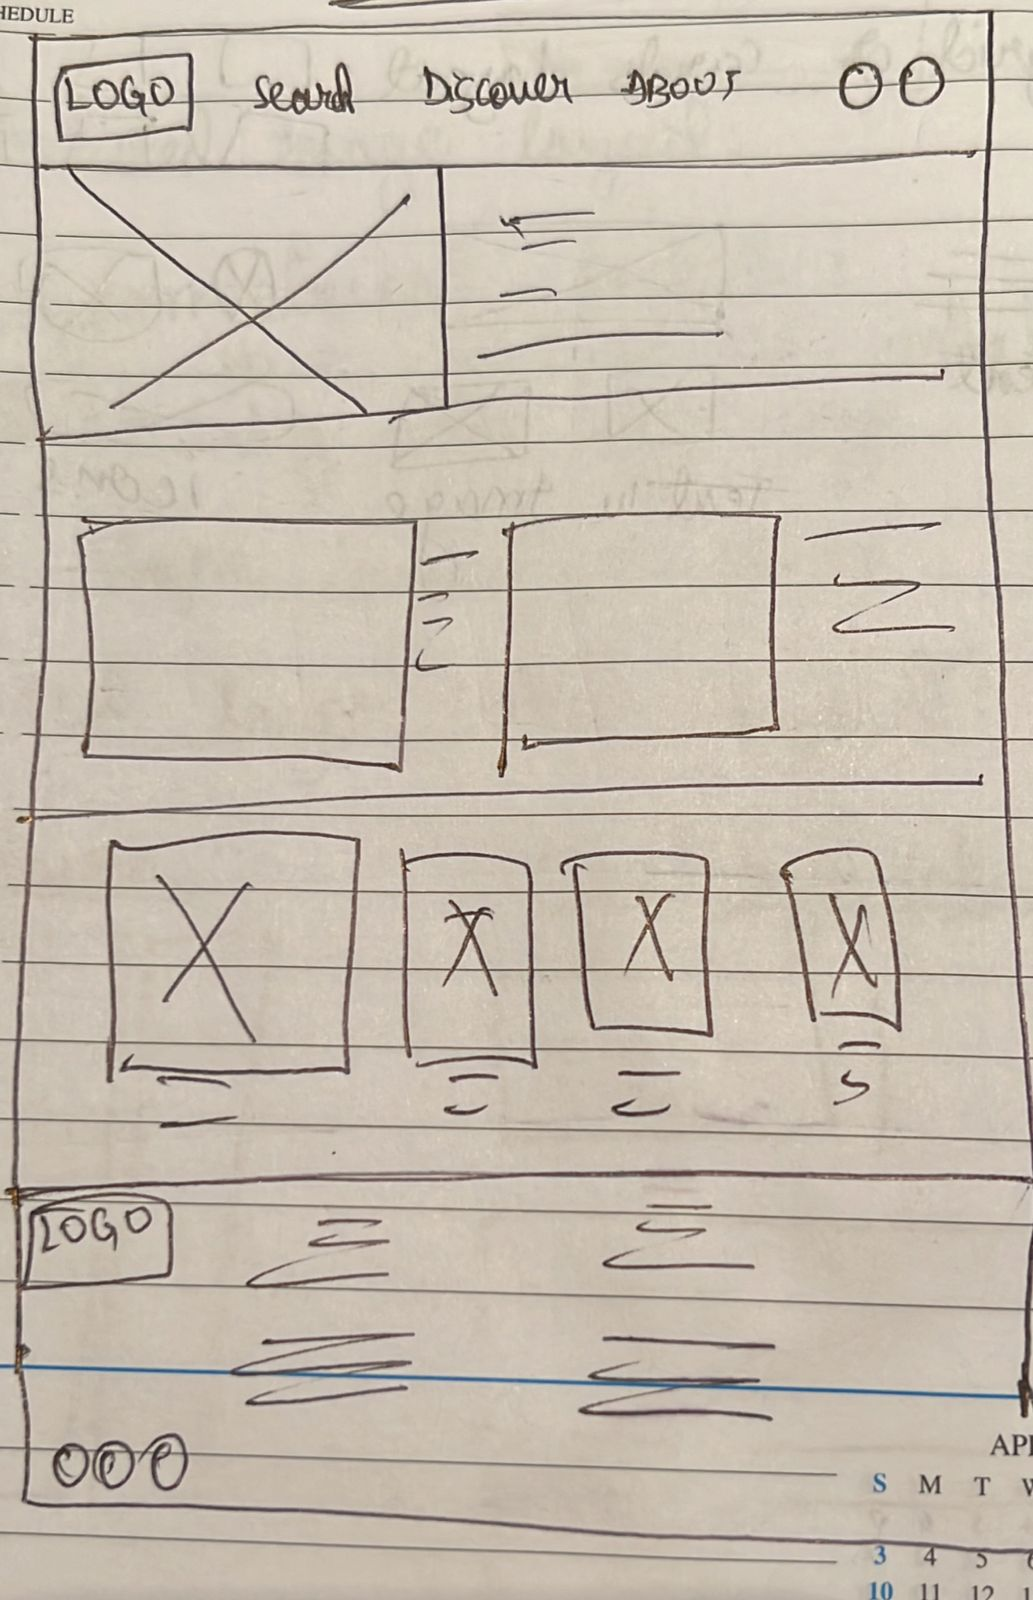 HEDULE
LOGO Search Discover ABOUT
LOGO
API
S M T
3 4 5 6
10 11 12 1